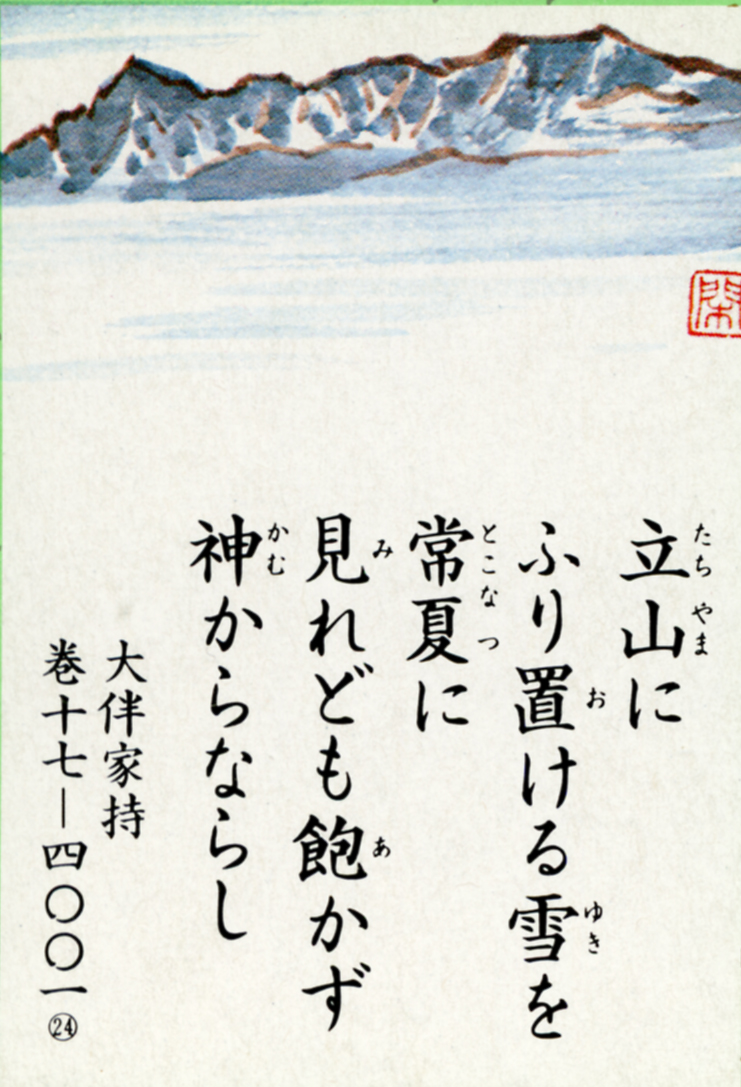 立山に
ふり置ける雪を
常夏に
見れども飽かず
神からならし
たち やま
お ゆき
とこ なつ
み あ
かむ
大伴家持
巻十七―四〇〇一㉔